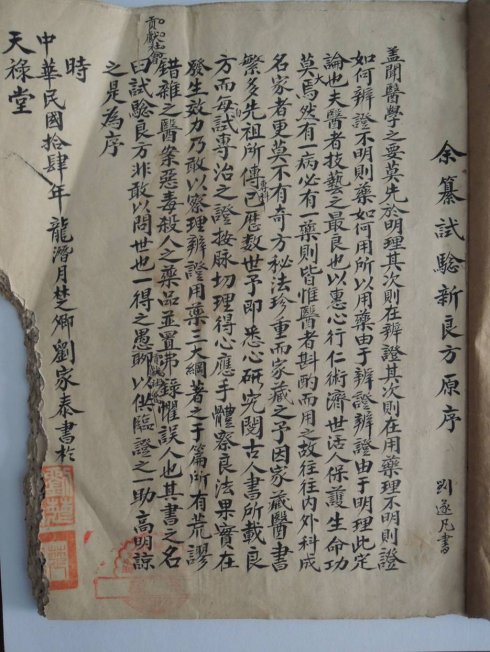 余纂試驗新良方原序
劉遂凡書
盖聞醫學之要莫先於明理其次則在辨證其次則在用藥理不明則證
如何辨證不明則藥如何用所以用藥由于辨證辨證由于明理此定
論也夫醫者技藝之最良也以惠心行仁術濟世活人保護生命功
莫大焉然有一病必有一藥則皆惟醫者斟酌而用之故往往内外科成
名家者更莫不有奇方秘法珍重而家藏之予因家藏醫書
繁多先祖所傳已歷數世予即悉心研究閱古人書所載良
方而毎試専治之證按脉切理得心應手體察良法果實在
發生效力乃敢以察理辨證用藥三大綱著之于篇所有荒謬
錯雜之醫案惡毒殺人之藥品並置弗錄懼誤人也其書之名
曰試驗良方非敢以問世也一得之愚聊以供臨證之一助高明諒
之是為序
貢獻社會
時
中華民國拾肆年龍潛月楚鄉劉家泰書於
天祿堂